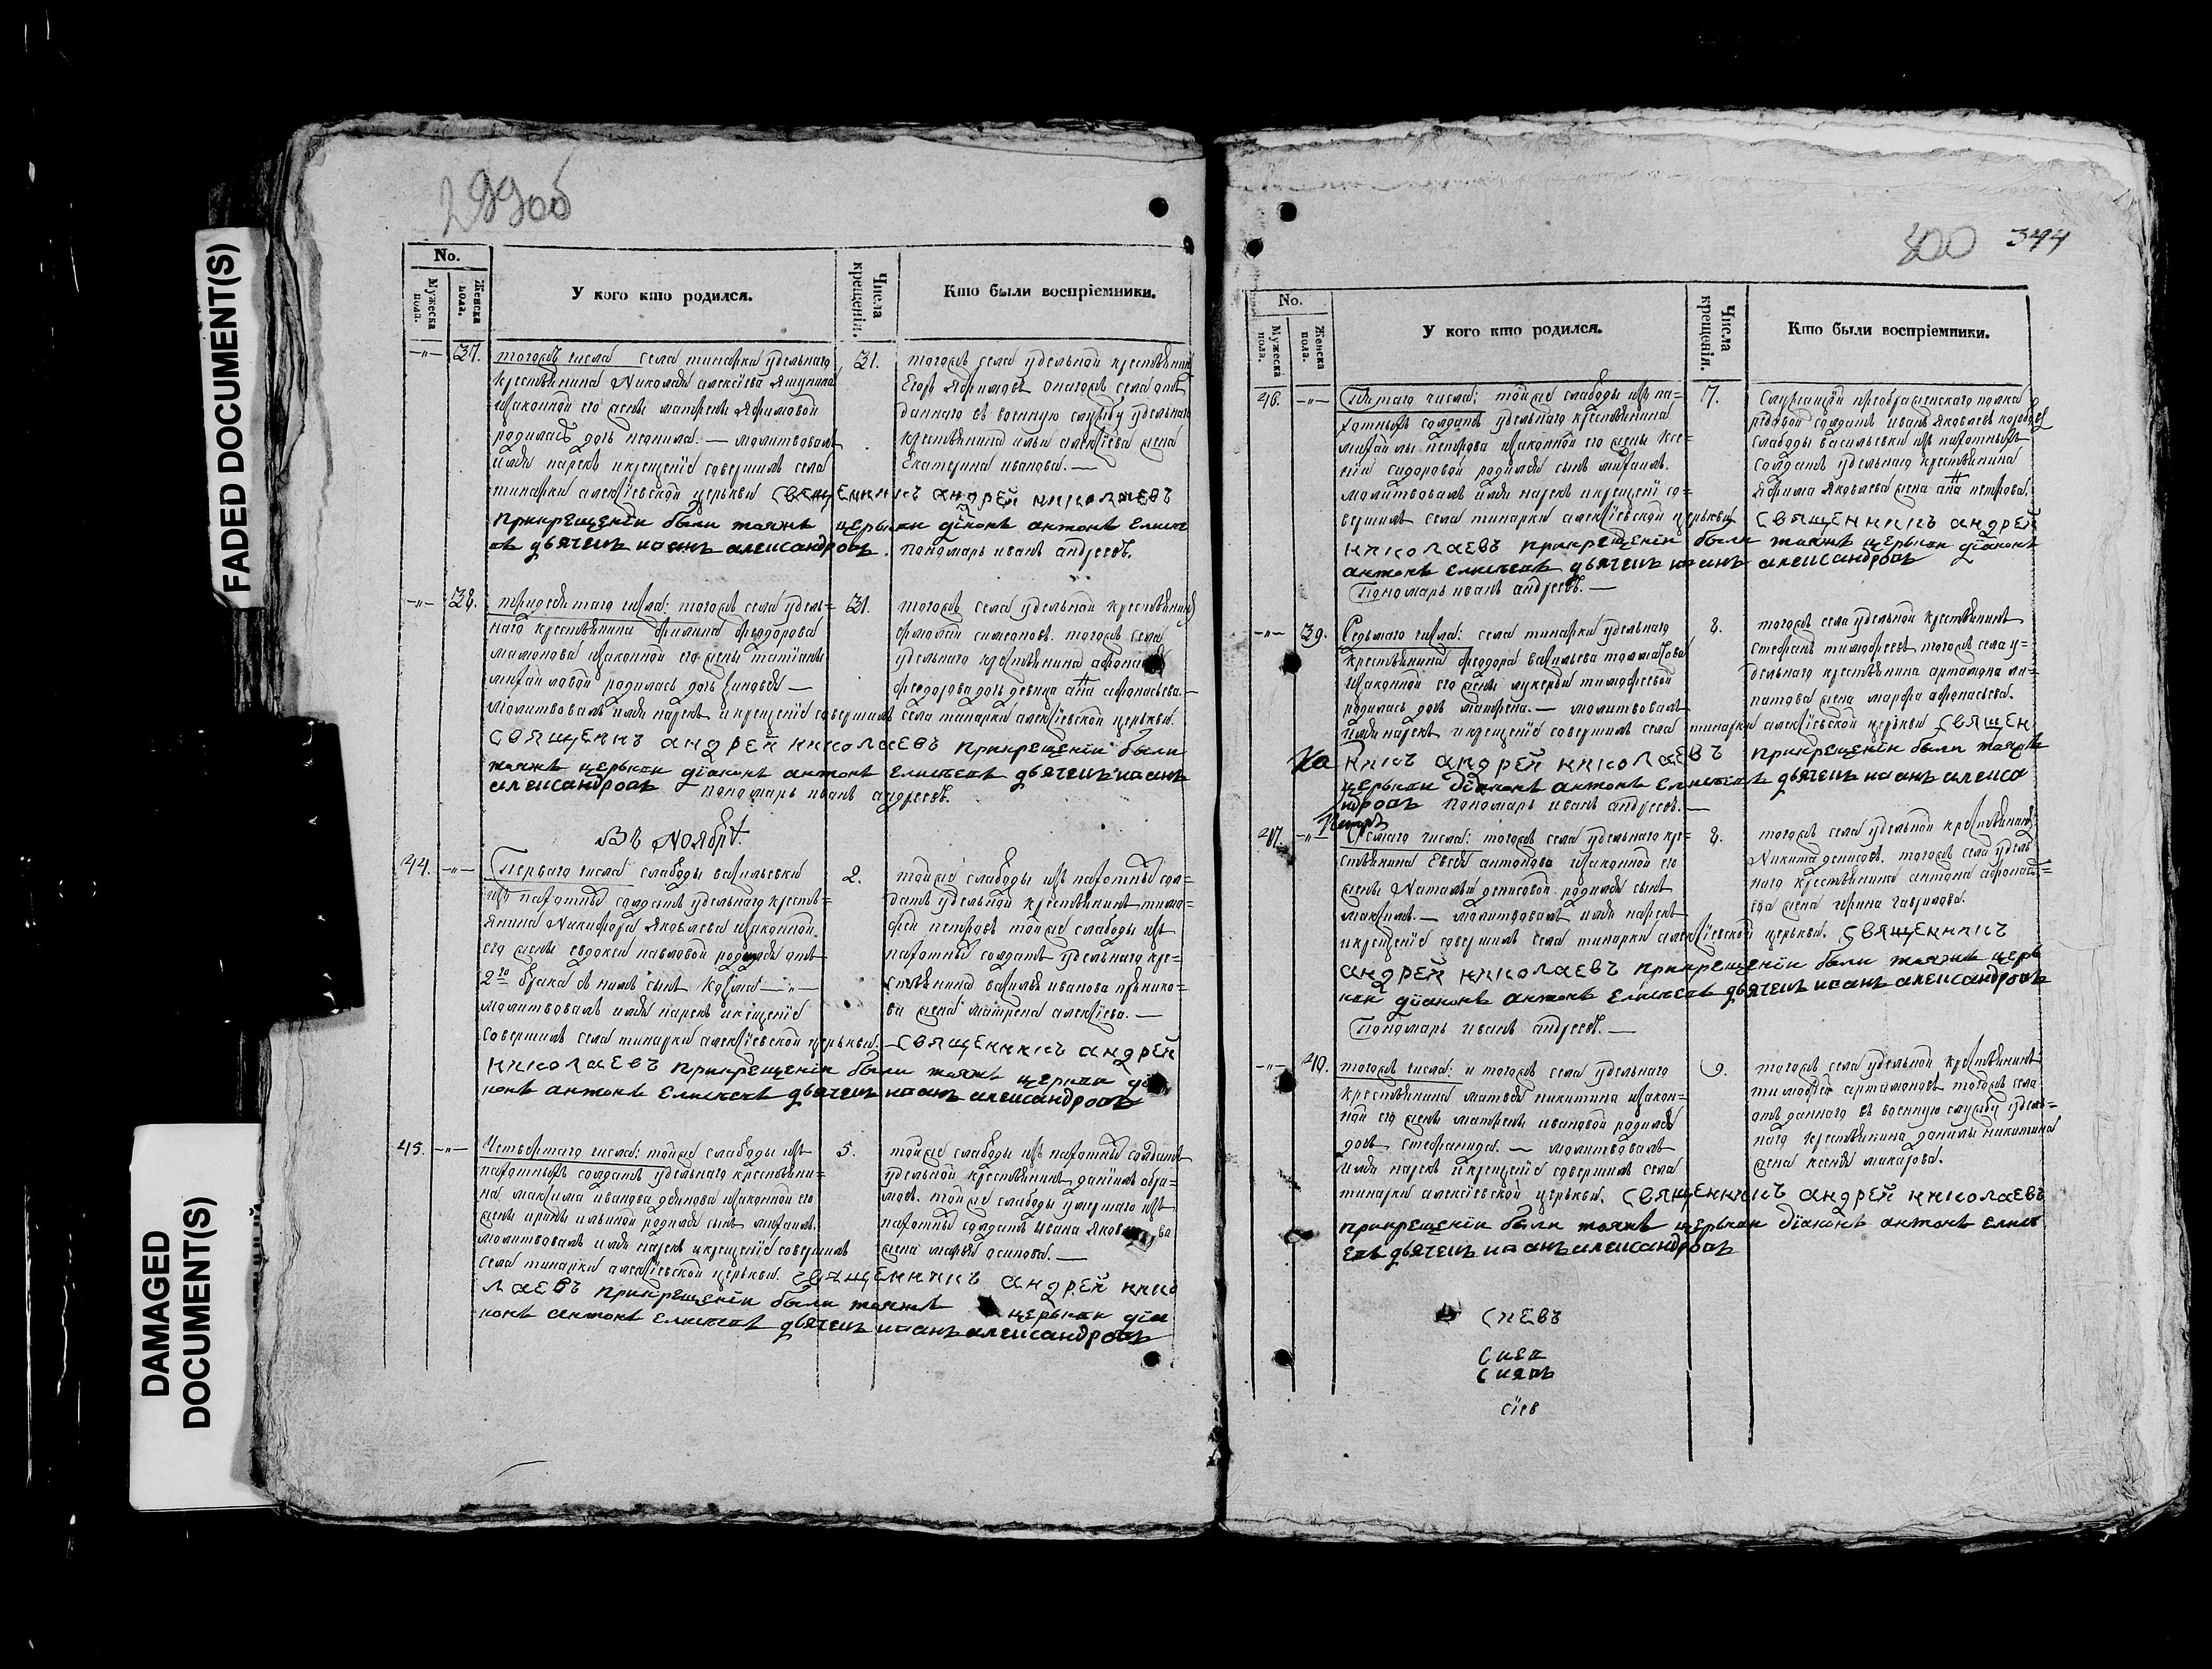 FADED DOCUMENT(S)
DAMAGED
DOCUMENT(S)
299об
No.
Мужеска пола.
Женска пола.
У кого кто родился.
Числа крещенія.
Кто были воспріемники.
—„— 37.
тогожъ числа села тинарки удельнаго
крестьянина Николая алексіева
изаконной его жены матрены Яфимовой
родилась дочь неонила. — молитвовалъ
имя нарекъ икрещеніе совершилъ села
тинарки алексіевской церькви священникъ андрей николаевъ
прикрещеніи были тояжъ церькви діаконъ антонъ елисѣ
евъ дьячекъ иоанъ александровъ. пономарь иванъ андреевъ.
31.
тогожъ села удельной крестьянинъ
Егоръ Яфимовъ онагожъ села отъ
даннаго въ военную службу удельнаго
крестьянина ильи алексіева жена
Екатерина иванова. —
—„— 38.
тридесятаго числа: тогожъ села удель=
наго крестьянина филипа феодорова
мамонова изаконной его жены татіаны
михайловой родилась дочь зиновья —
молитвовалъ имя нарекъ икрещеніе совершилъ села тинарки алексіевской церькви.
священникъ андрей николаевъ прикрещеніи были
тояжъ церькви діаконъ антонъ елисѣевъ дьячекъ иоанъ
александровъ пономарь иванъ андреевъ.
31.
тогожъ села удельной крестьянинъ
ермолай симеоновъ. тогожъ села
удельнаго крестьянина
феодорова дочь девица анна афонасьева. —
Въ Ноябрѣ.
44. —„—
Перваго числа слабоды васильевки
изъ пахотныхъ солдатъ удельнаго кресть=
янина Никифора Яковлева изаконной
его жены евдокеи павловой родился отъ
2го брака съ нимъ сынъ Козма —„—
молитвовалъ имя нарекъ икрещеніе
совершилъ села тинарки алексіевской церькви. — священникъ андрей
николаевъ прикрещеніи были тояжъ церкви діа
конъ антонъ елисѣевъ дьячекъ иоанъ александровъ
2.
тойже слабоды изъ пахотныхъ сол=
датъ удельной крестьянинъ тимо=
фей петровъ тойже слабоды изъ
пахотныхъ солдатъ удельнаго кре=
стьянина василья иванова
жена матрена алексіева. —
45. —„—
Четвертаго числа: тойже слабоды изъ
пахотныхъ солдатъ удельнаго крестьяни=
на максима иванова изаконной его
жены ирины ильиной родился сынъ михаилъ.
молитвовалъ имя нарекъ икрещеніе совершилъ
села тинарки алексіевской церькви. священникъ андрей нико
лаевъ прикрещеніи были тояжъ церькви діа
конъ антонъ елисѣевъ дьячекъ иоанъ александровъ
5.
тойже слабоды изъ пахотныхъ солдатъ
удельной крестьянинъ даніилъ
тойже слабоды умершаго изъ
пахотныхъ солдатъ ивана
жена марья осипова. —
300 344
No.
Мужеска пола.
Женска пола.
У кого кто родился.
Числа крещенія.
Кто были воспріемники.
46. —„—
Пятаго числа: тойже слабоды изъ па=
хотныхъ солдатъ удельнаго крестьянина
михайлы петрова изаконной его жены ксе=
ніи сидоровой родился сынъ михаилъ.
молитвовалъ имя нарекъ икрещеніе со=
вершилъ села тинарки алексіевской церькви священникъ андрей
николаевъ прикрещеніи были тояжъ церькви діаконъ
антонъ елисѣевъ дьячекъ иоанъ александровъ
Пономарь иванъ андреевъ. —
7.
служащій преображенскаго полка
рядовой солдатъ иванъ Яковлевъ
слабоды васильевки изъ пахотныхъ
солдатъ удельнаго крестьянина
Яфима Яковлева жена анна петрова.
—„— 39.
Седьмаго числа: села тинарки удельнаго
крестьянина феодора васильева толмачова
изаконной его жены лукерьи тимофеевой
родилась дочь матрена. — молитвовалъ
имя нарекъ икрещеніе совершилъ села тинарки алексіевской церькви священ
никъ андрей николаевъ прикрещеніи были тояжъ
церькви діаконъ антонъ елисѣевъ дьячекъ иоанъ алекса
ндровъ пономарь иванъ андреевъ. —
8.
тогожъ села удельной крестьянинъ
стефанъ тимофеевъ тогожъ села у=
дельнаго крестьянина артамона ли=
патова жена марфа афонасьева.
47. —„—
тогожъ села удельнаго кре=
стьянина Евсея антонова изаконной его
жены Натальи денисовой родился сынъ
максимъ. — молитвовалъ имя нарекъ
икрещеніе совершилъ села тинарки алексіевской церькви. священникъ
андрей николаевъ прикрещеніи были тояжъ церь
кви діаконъ антонъ елисѣевъ дьячекъ иоанъ александровъ
Пономарь иванъ андреевъ. —
8.
тогожъ села удельной крестьянинъ
Никита денисовъ. тогожъ села удель
наго крестьянина антона афонась=
ева жена ирина гаврилова.
—„— 40.
тогожъ числа: и тогожъ села удельнаго
крестьянина матвея никитина изакон=
ной его жены матрены ивановой родилась
дочь стефанида. — молитвовалъ
имя нарекъ икрещеніе совершилъ села
тинарки алексіевской церькви. священникъ андрей николаевъ
прикрещеніи были тояжъ церькви діаконъ антонъ елисѣ
евъ дьячекъ иоанъ александровъ
9.
тогожъ села удельной крестьянинъ
тимофей артамоновъ тогожъ села
отъ даннаго въ военную службу удель=
наго крестьянина данилы никитина
жена ксенья макарова.